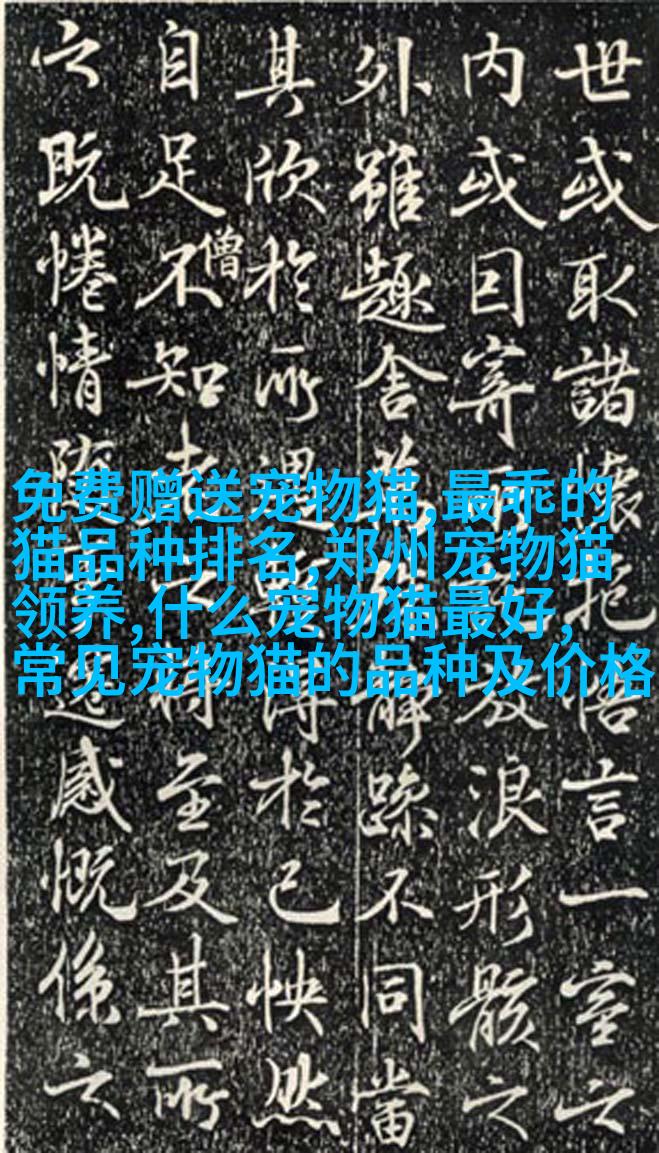 免费赠送宠物猫,最乖的
猫品种排名,郑州宠物猫
领养,什么宠物猫最好,
常见宠物猫的品种及价格
世或取諸懷抱悟言一室之
内或因寄所放浪形骸之
外雖趣舍躁不同當
其欣於所遇得於己怏然
自足不知老之將至及其所
僧
之既惓情隨遷感慨係之